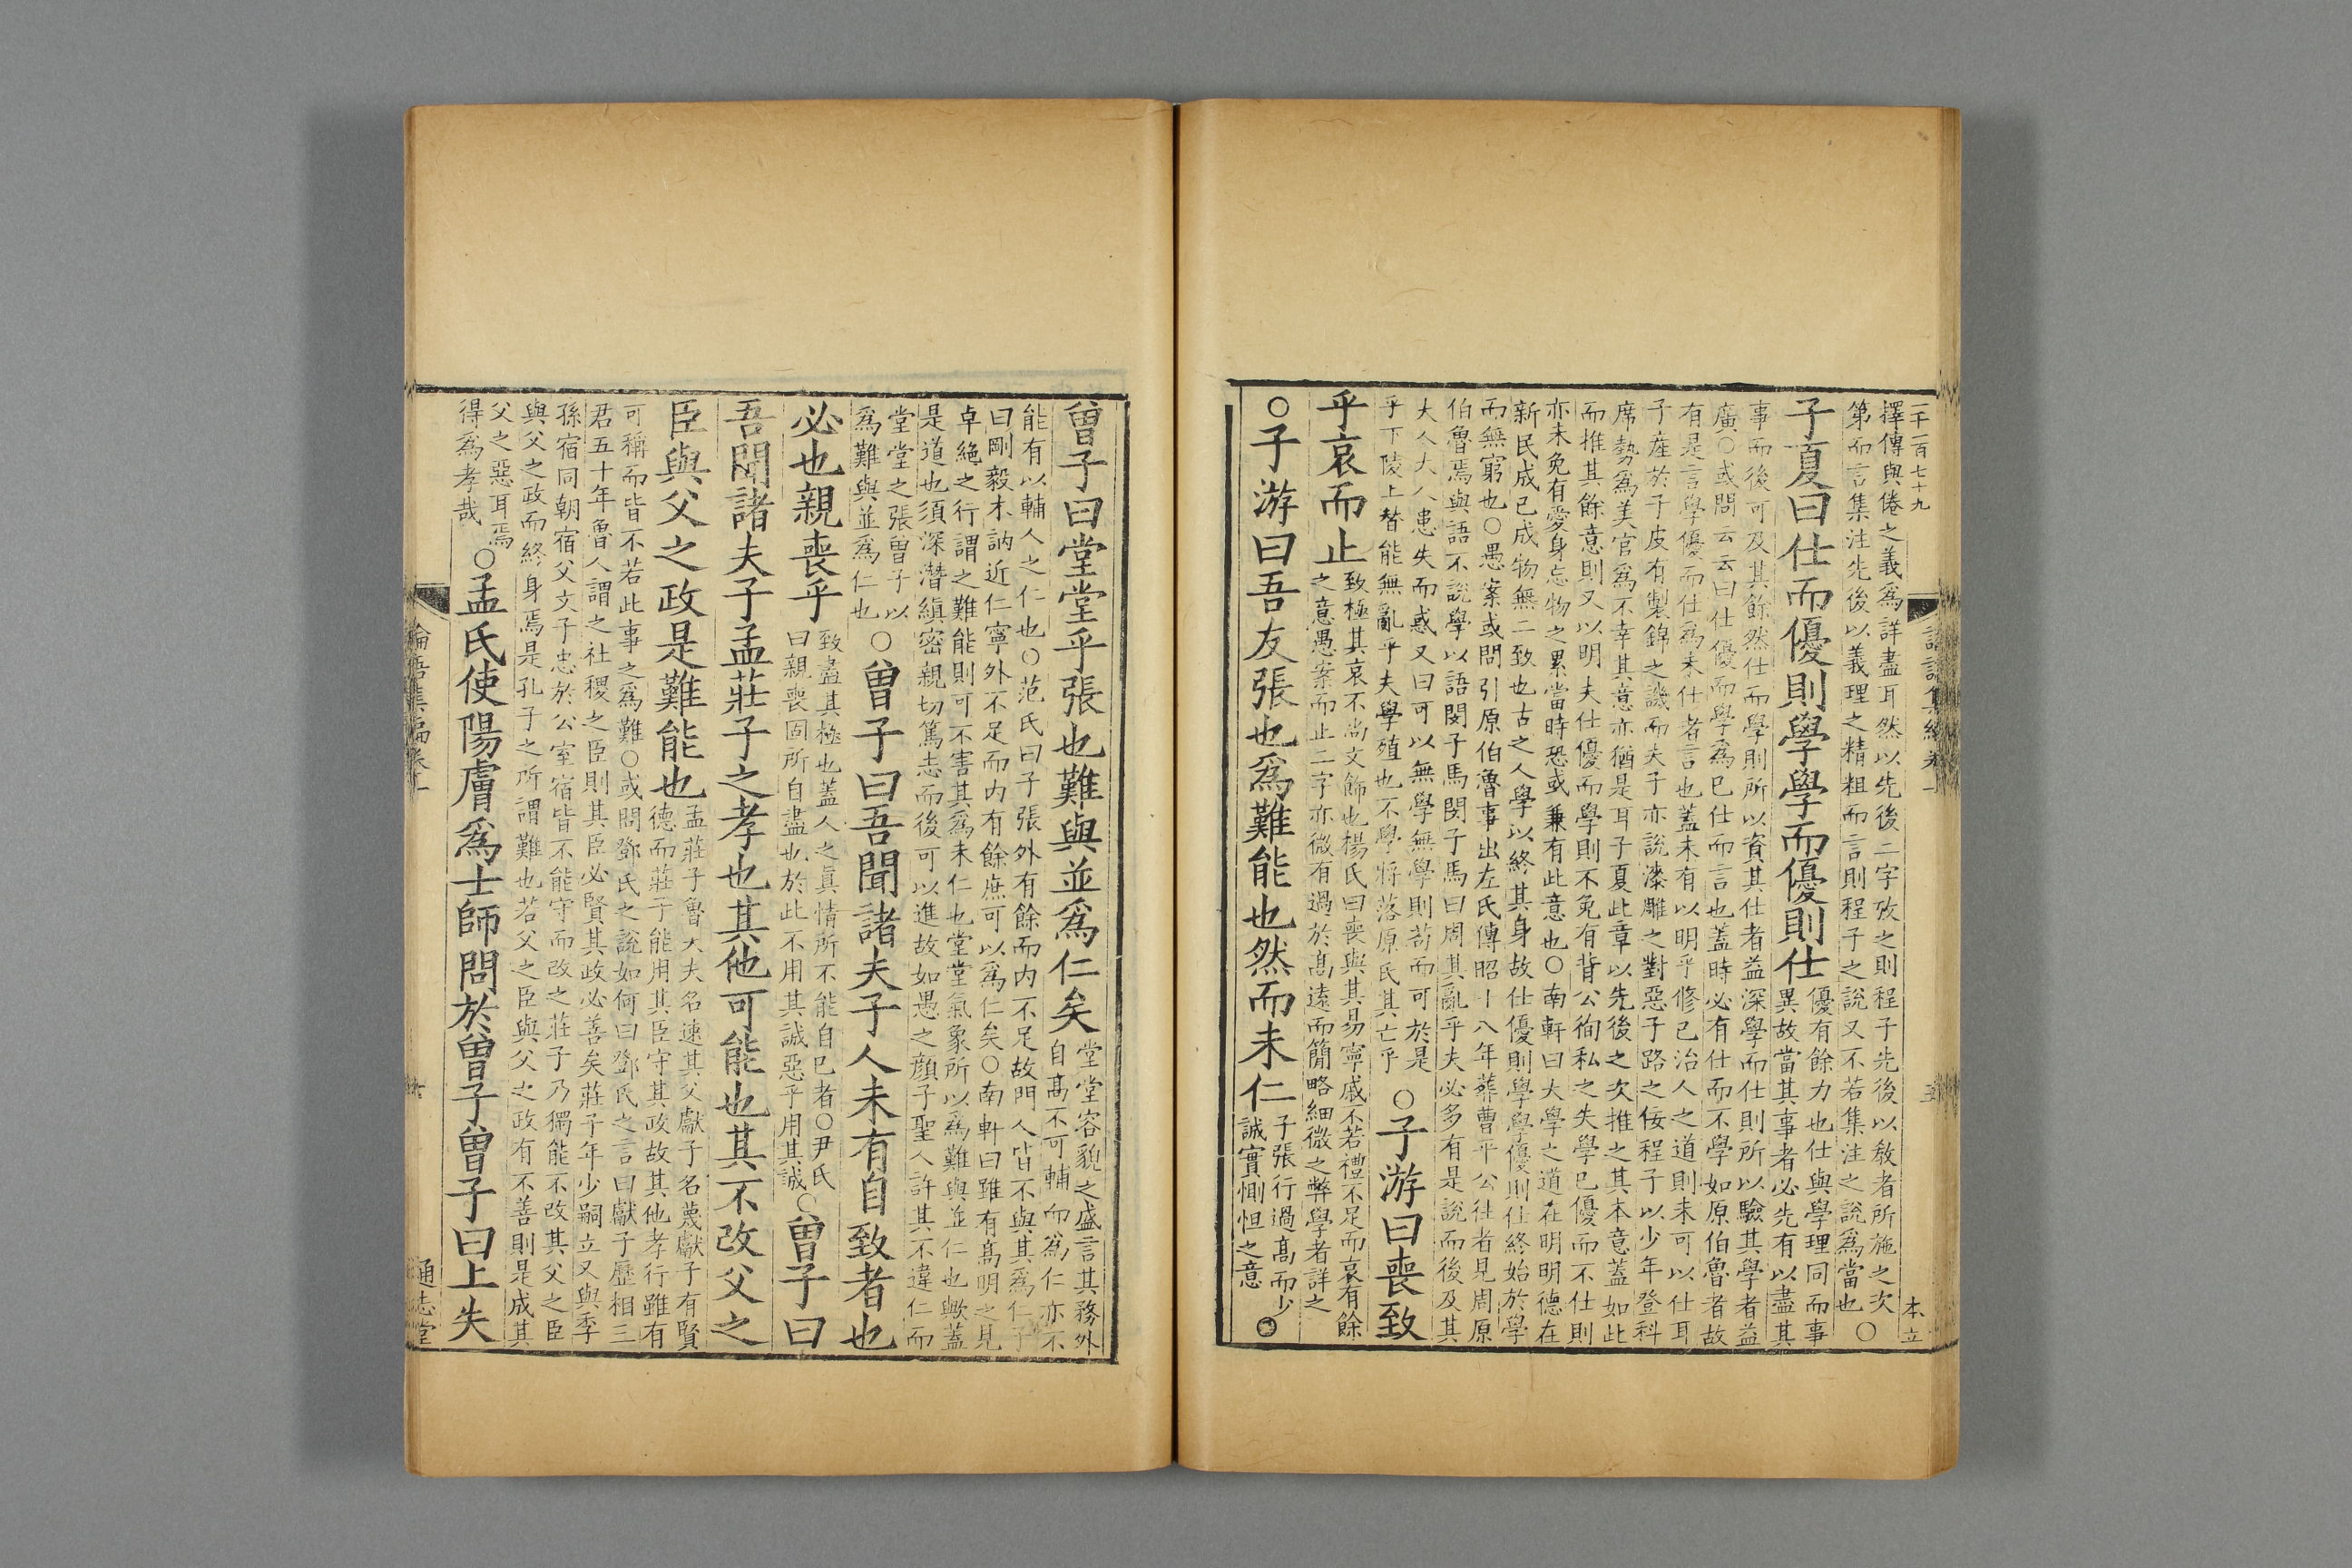 擇傳與倦之義爲詳盡耳然以先後二字攷之則程子先後以敎者所施之次
第而言集注先後以義理之精粗而言則程子之說又不若集注之說爲當也○
子夏曰仕而優則學學而優則仕
優有餘力也仕與學理同而事
異故當其事者必先有以盡其
事而後可及其餘然仕而學則所以資其仕者益深學而仕則所以驗其學者益
廣○或問云云曰仕優而學爲已仕而言也蓋時必有仕而不學如原伯魯者故
有是言學優而仕爲未仕者言也蓋未有以明乎修已治人之道則未可以仕耳
子產於子皮有製錦之譏而夫子亦說漆雕之對惡子路之佞程子以少年登科
席勢爲美官爲不幸其意亦猶是耳子夏此章以先後之次推之其本意蓋如此
而推其餘意則又以明夫仕優而學則不免有背公徇私之失學已優而不仕則
亦未免有愛身忘物之累當時恐或兼有此意也○南軒曰大學之道在明明德在
新民成已成物無二致也古之人學以終其身故仕優則學學優則仕終始於學
而無窮也○愚案或問引原伯魯事出左氏傳昭十八年葬曹平公往者見周原
伯魯焉與語不說學以語閔子馬閔子馬曰周其亂乎夫必多有是說而後及其
大人大人患失而惑又曰可以無學無學則苟而可於是
乎下陵上替能無亂乎夫學殖也不學將落原氏其亡乎
○子游曰喪致
乎哀而止
致極其哀不尚文飾也楊氏曰喪與其易寧戚不若禮不足而哀有餘
之意愚案而止二字亦微有過於高遠而簡略細微之弊學者詳之
○子游曰吾友張也爲難能也然而未仁
子張行過高而少
誠實惻怛之意
曾子曰堂堂乎張也難與並爲仁矣
堂堂容貌之盛言其務外
自高不可輔而爲仁亦不
能有以輔人之仁也○范氏曰子張外有餘而內不足故門人皆不與其爲仁子
曰剛毅木訥近仁寧外不足而內有餘庶可以爲仁矣○南軒曰雖有高明之見
卓絶之行謂之難能則可不害其爲未仁也堂堂氣象所以爲難與並仁也歟蓋
是道也須深潛縝密親切篤志而後可以進故如愚之顔子聖人許其不違仁而
堂堂之張曾子以
爲難與並爲仁也
○曾子曰吾聞諸夫子人未有自致者也
必也親喪乎
致盡其極也蓋人之眞情所不能自已者○尹氏
曰親喪固所自盡也於此不用其誠惡乎用其誠
○曾子曰
吾聞諸夫子孟莊子之孝也其他可能也其不改父之
臣與父之政是難能也
孟莊子魯大夫名速其父獻子名蔑獻子有賢
德而莊子能用其臣守其政故其他孝行雖有
可稱而皆不若此事之爲難○或問鄧氏之說如何曰鄧氏之言曰獻子歷相三
君五十年魯人謂之社稷之臣則其臣必賢其政必善矣莊子年少嗣立又與季
孫宿同朝宿父文子忠於公室宿皆不能守而改之莊子乃獨能不改其父之臣
與父之政而終身焉是孔子之所謂難也若父之臣與父之政有不善則是成其
父之惡耳焉
得爲孝哉
○孟氏使陽膚爲士師問於曾子曾子曰上失
論語集編卷十
通志堂
本立